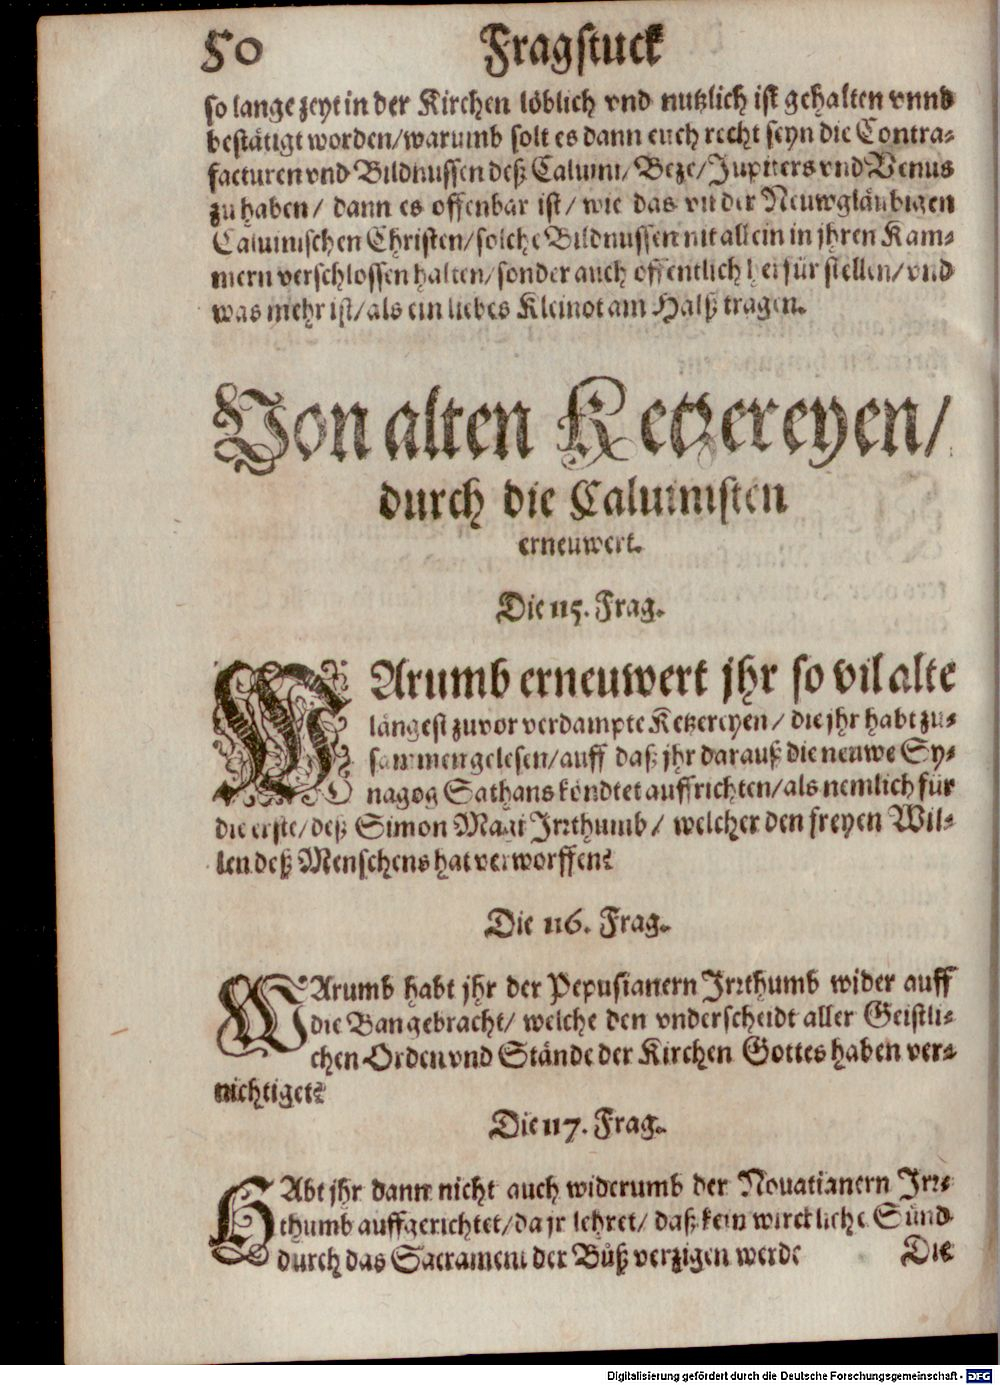 50 Fragstuck
so lange zeyt in der Kirchen löblich vnd nutzlich ist gehalten vnnd
bestätigt worden/warumb solt es dann euch recht seyn die Contra-
facturen vnd Bildnussen deß Caluini/ Beze/Jupiters vnd Venus
zu haben/ dann es offenbar ist/ wie das vil der Neuwgläubigen
Caluinischen Christen/solche Bildnussen nit allein in jhren Kam-
mern verschlossen halten/sonder auch offentlich herfür stellen/vnd
was mehr ist/als ein liebes Kleinot am Halß tragen.
Von alten Ketzereyen/
durch die Caluinisten
erneuwert.
Die 115. Frag.
WArumb erneuwert jhr so vil alte
längest zuvor verdampte Ketzereyen/ die jhr habt zu-
sammen gelesen/auff daß jhr darauß die neuwe Sy-
nagog Sathans köndtet auffrichten/als nemlich für
die erste/deß Simon Magi Irrthumb/ welcher den freyen Wil-
len deß Menschens hat verworffen?
Die 116. Frag.
WArumb habt jhr der Pepusianern Irrthumb wider auff
die Ban gebracht/ welche den vnderscheidt aller Geistli-
chen Orden vnd Stände der Kirchen Gottes haben ver-
nichtiget?
Die 117. Frag.
HAbt jhr dann nicht auch widerumb der Nouatianern Irr-
thumb auffgerichtet/da jr lehret/ daß kein wirckliche Sünd
durch das Sacrament der Büß verzigen werde
Die
Digitalisierung gefördert durch die Deutsche Forschungsgemeinschaft - DFG